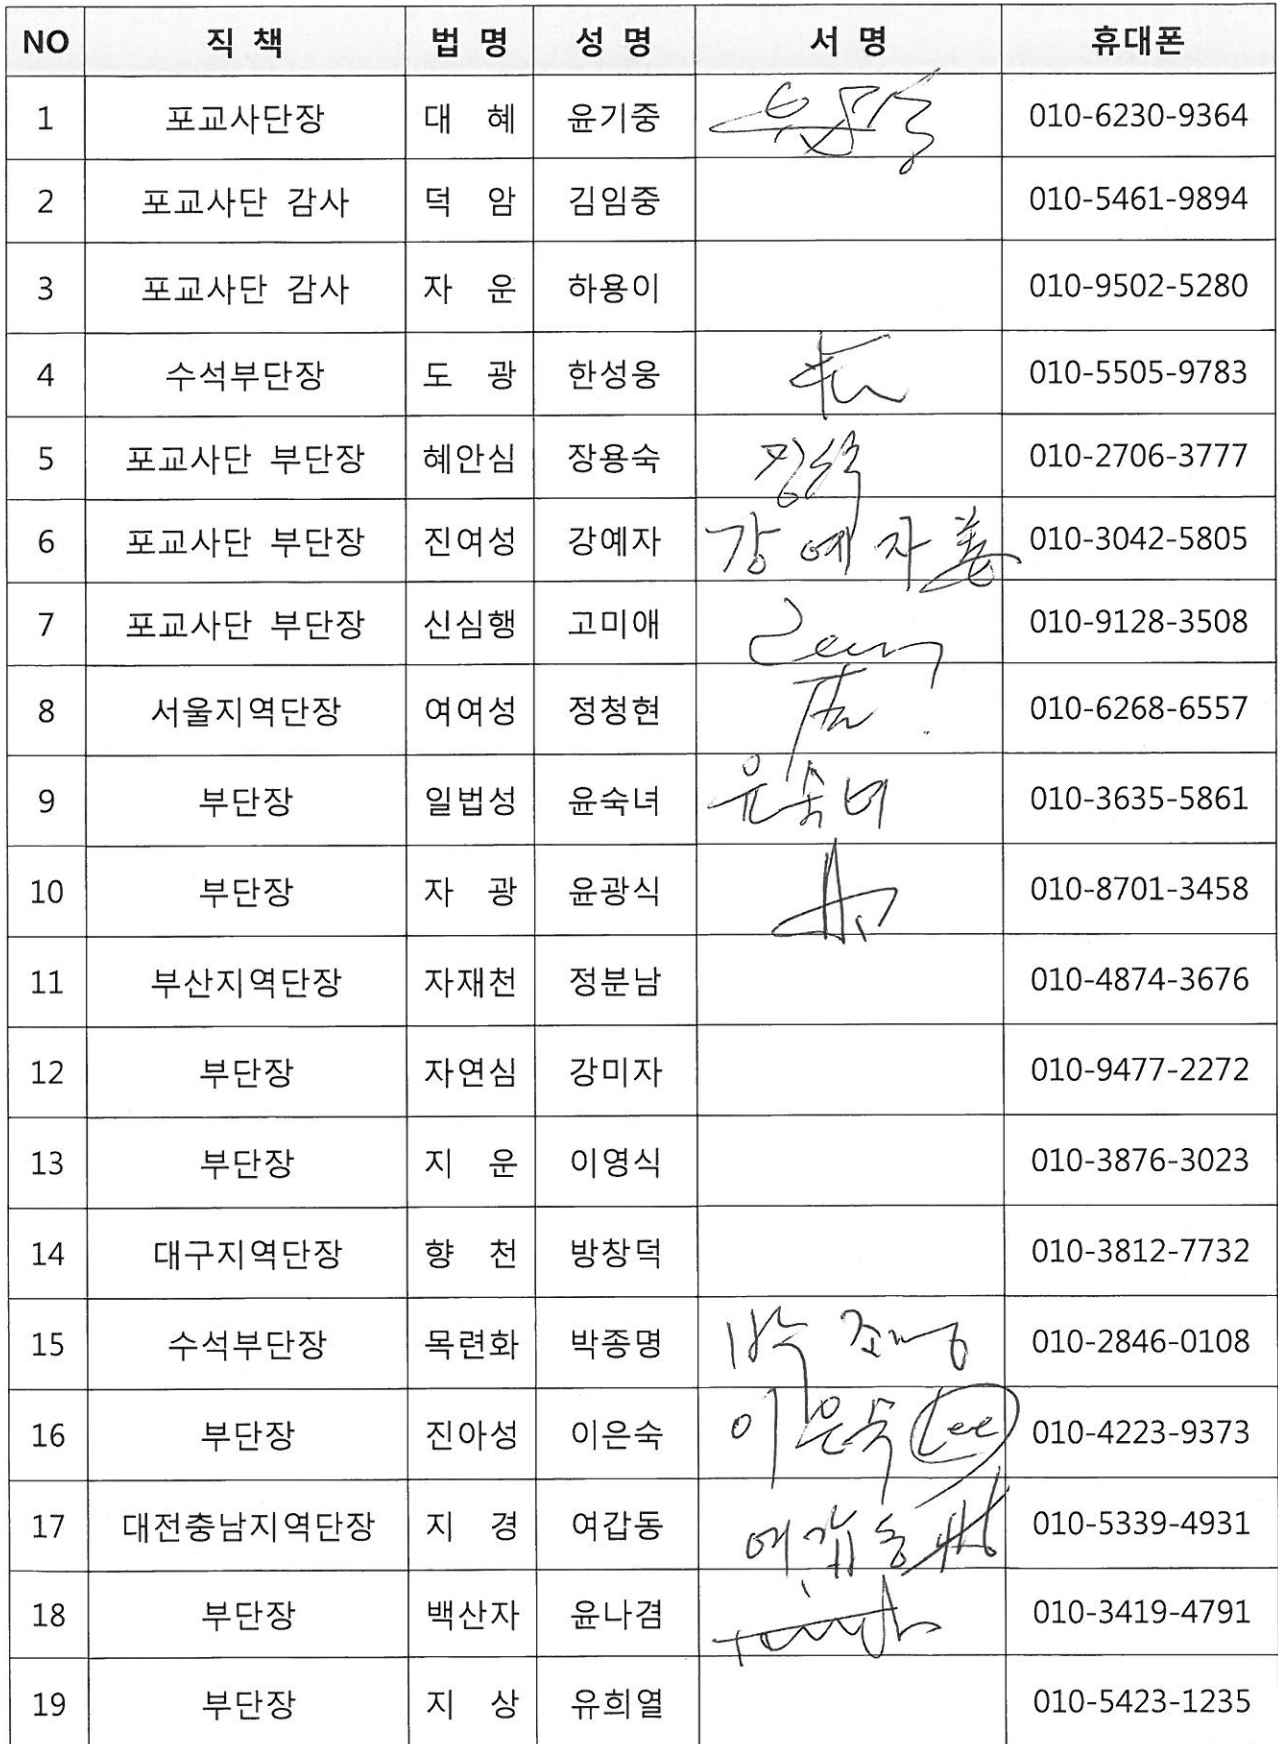 NO 직 책 법 명 성 명 서 명 휴대폰
1 포교사단장 대 혜 윤기중 010-6230-9364
2 포교사단 감사 덕 암 김임중 010-5461-9894
3 포교사단 감사 자 운 하용이 010-9502-5280
4 수석부단장 도 광 한성웅 010-5505-9783
5 포교사단 부단장 혜안심 장용숙 010-2706-3777
6 포교사단 부단장 진여성 강예자 강예자 010-3042-5805
7 포교사단 부단장 신심행 고미애 010-9128-3508
8 서울지역단장 여여성 정청현 010-6268-6557
9 부단장 일법성 윤숙녀 윤숙녀 010-3635-5861
10 부단장 자 광 윤광식 010-8701-3458
11 부산지역단장 자재천 정분남 010-4874-3676
12 부단장 자연심 강미자 010-9477-2272
13 부단장 지 운 이영식 010-3876-3023
14 대구지역단장 향 천 방창덕 010-3812-7732
15 수석부단장 목련화 박종명 박종명 010-2846-0108
16 부단장 진아성 이은숙 이은숙 Lee 010-4223-9373
17 대전충남지역단장 지 경 여갑동 여갑동 010-5339-4931
18 부단장 백산자 윤나겸 010-3419-4791
19 부단장 지 상 유희열 010-5423-1235